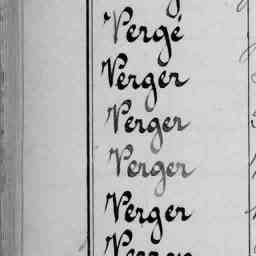 Vergé
Verger
Verger
Verger
Verger